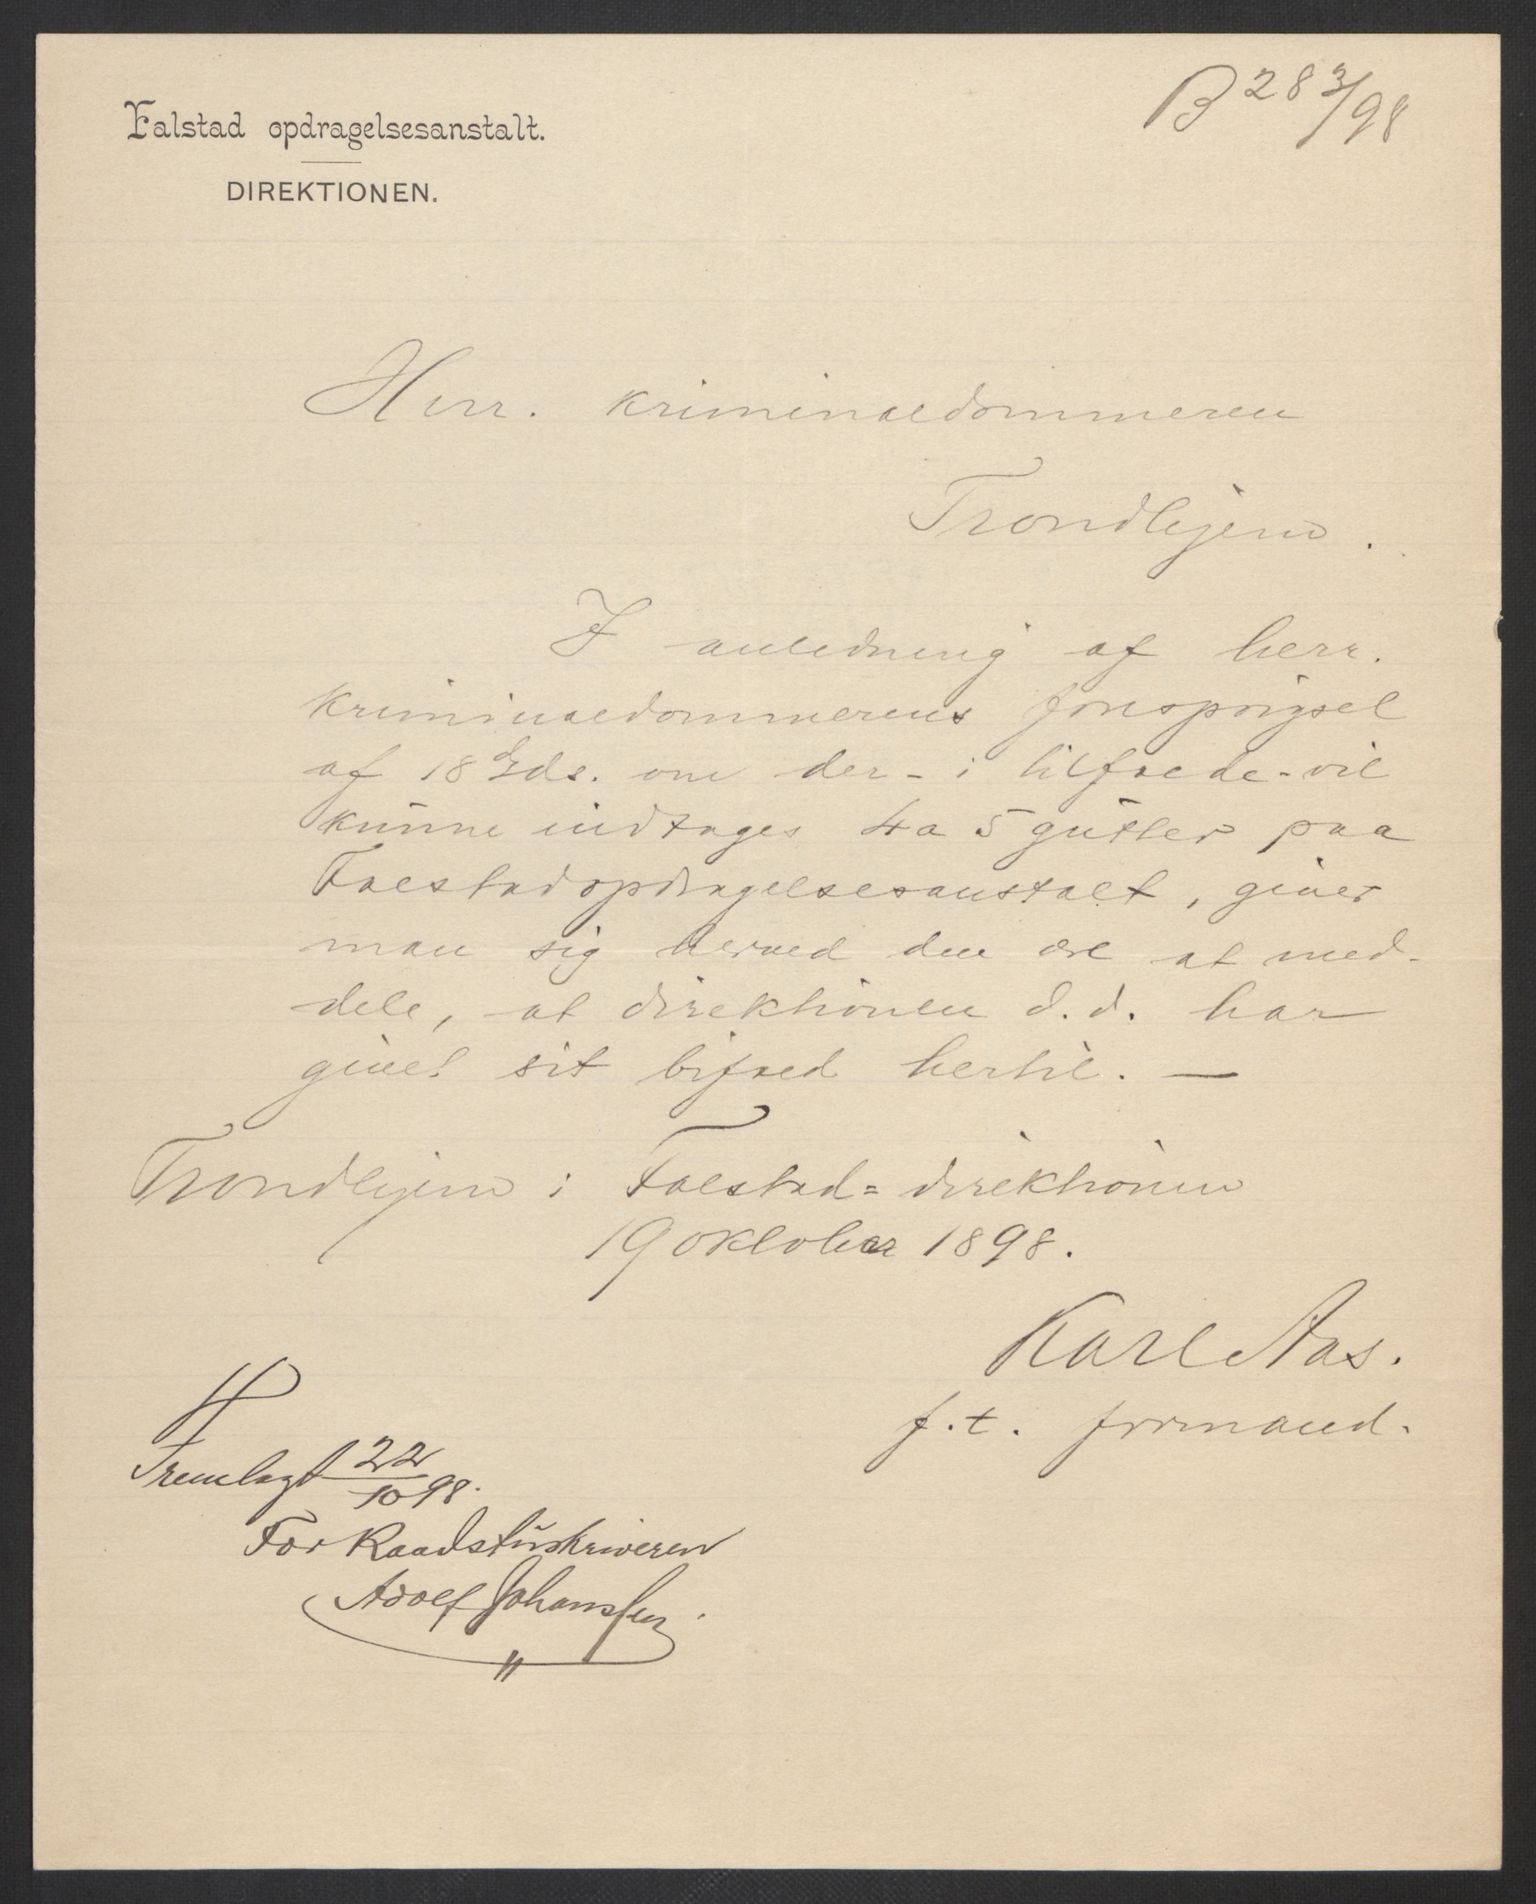 Falstad opdragelsesanstalt.
DIREKTIONEN.
B 283/98
Herr. kriminaldommeren
Trondhjem.
I anledning af herr.
kriminaldommerens forespørgsel
af 18 ds. om der - i tilfælde - vil
kunne indtages 4 a 5 gutter paa
Falstad opdragelsesanstalt, giver
man sig herved den ære at med-
dele, at direktionen d.d. har
givet sit bifald hertil. —
Trondhjem i Falstad = direktionen
19 oktober 1898.
Karl Aas.
f.t. formand.
H
Fremlagt 22/10 98.
For Raadstuskriveren
Adolf Johanssen.